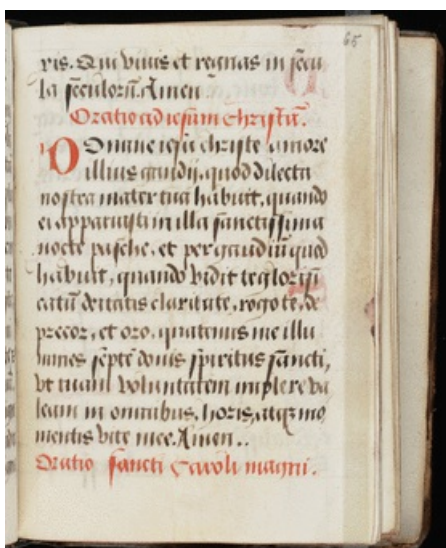 65
ris. Qui viuis et regnas in secu
la seculorũ. Amen
Oratio ad iesum christũ.
Domine iesu christe amore
illius gaudij, quod dilecta
nostra mater tua habuit, quando
ei apparuisti in illa sanctissima
nocte pasche, et per gaudiũ quod
habuit, quando vidit te glorifi
catũ deitatis claritate, rogo te, de
precor, et oro, quatenus me illu
mines septẽ donis spiritus sancti,
vt tuam voluntatem implere va
leam in omnibus, horis, atq; mo
mentis vite mee. Amen..
Oratio sancti Caroli magni.